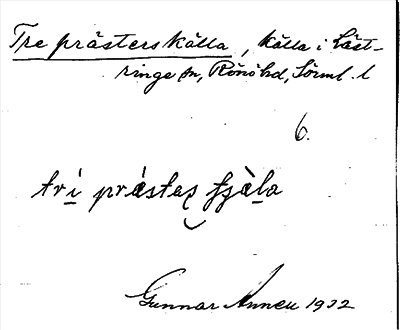 Tre prästers källa, källa i Läst-
ringe sn, Rönö hd, Sörml. l
6.
tri prästas tjäla
Gunnar Annell 1932